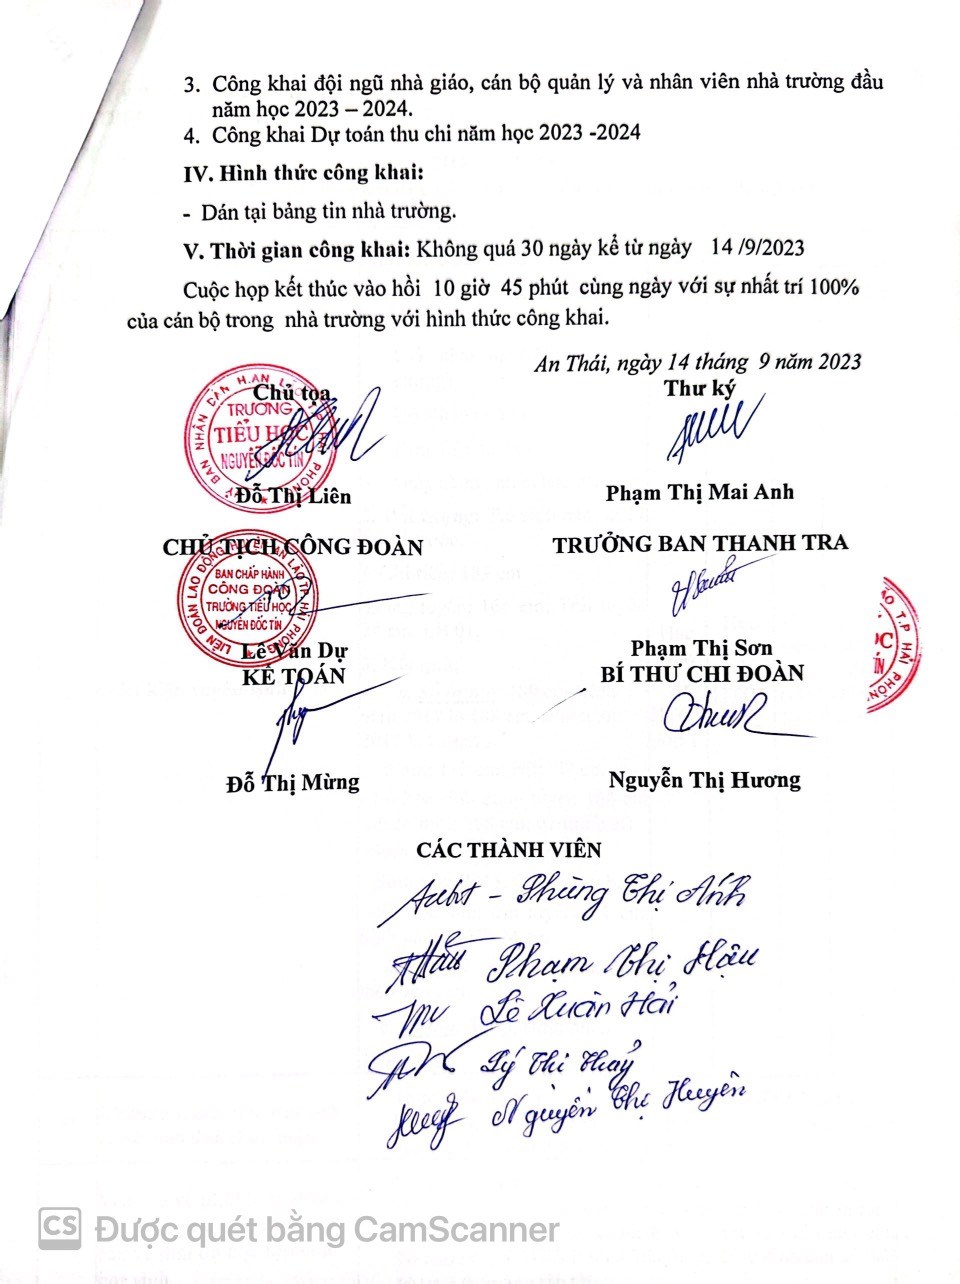 3. Công khai đội ngũ nhà giáo, cán bộ quản lý và nhân viên nhà trường đầu
năm học 2023 – 2024.
4. Công khai Dự toán thu chi năm học 2023 -2024
IV. Hình thức công khai:
- Dán tại bảng tin nhà trường.
V. Thời gian công khai: Không quá 30 ngày kể từ ngày 14 /9/2023
Cuộc họp kết thúc vào hồi 10 giờ 45 phút cùng ngày với sự nhất trí 100%
của cán bộ trong nhà trường với hình thức công khai.
An Thái, ngày 14 tháng 9 năm 2023
Chủ tọa Thư ký
TRƯỜNG
TIỂU HỌC
NGUYỄN ĐỐC TÍN
Đỗ Thị Liên Phạm Thị Mai Anh
CHỦ TỊCH CÔNG ĐOÀN TRƯỞNG BAN THANH TRA
LIÊN ĐOÀN LAO ĐỘNG HUYỆN AN LÃO TP HẢI PHÒNG
BAN CHẤP HÀNH
CÔNG ĐOÀN
TRƯỜNG TIỂU HỌC
NGUYỄN ĐỐC TÍN
T.P HẢI PHÒNG
Lê Văn Dự Phạm Thị Sơn
KẾ TOÁN BÍ THƯ CHI ĐOÀN
Đỗ Thị Mừng Nguyễn Thị Hương
CÁC THÀNH VIÊN
Phùng Thị Ánh
Hậu Phạm Thị Hậu
Lê Xuân Hải
Lý Thị Thuỷ
Nguyễn Thị Huyên
CS Được quét bằng CamScanner